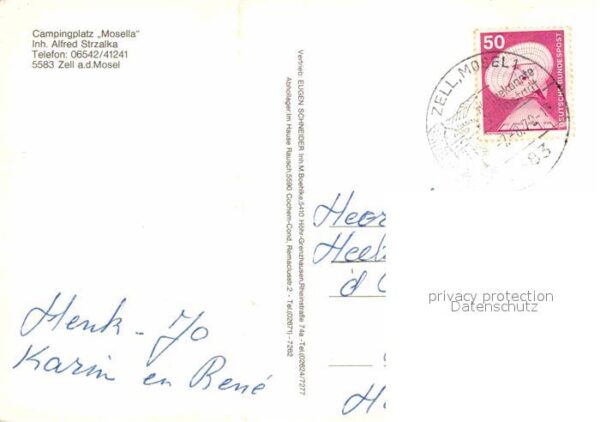 Campingplatz „Mosella“
Inh. Alfred Strzalka
Telefon: 06542/41241
5583 Zell a.d.Mosel
Henk - Jo
Karin en René
Vertrieb: EUGEN SCHNEIDER Inh.M.Boehlke,5410 Höhr-Grenzhausen,Rheinstraße 74a -Tel.(02624/7277
Abhollager:im Hause Rausch,5590 Cochem-Cond, Remaclusstr.2 - Tel.(02671) - 7262
50
DEUTSCHE BUNDESPOST
ZELL, MOSEL 1
83
privacy protection
Datenschutz